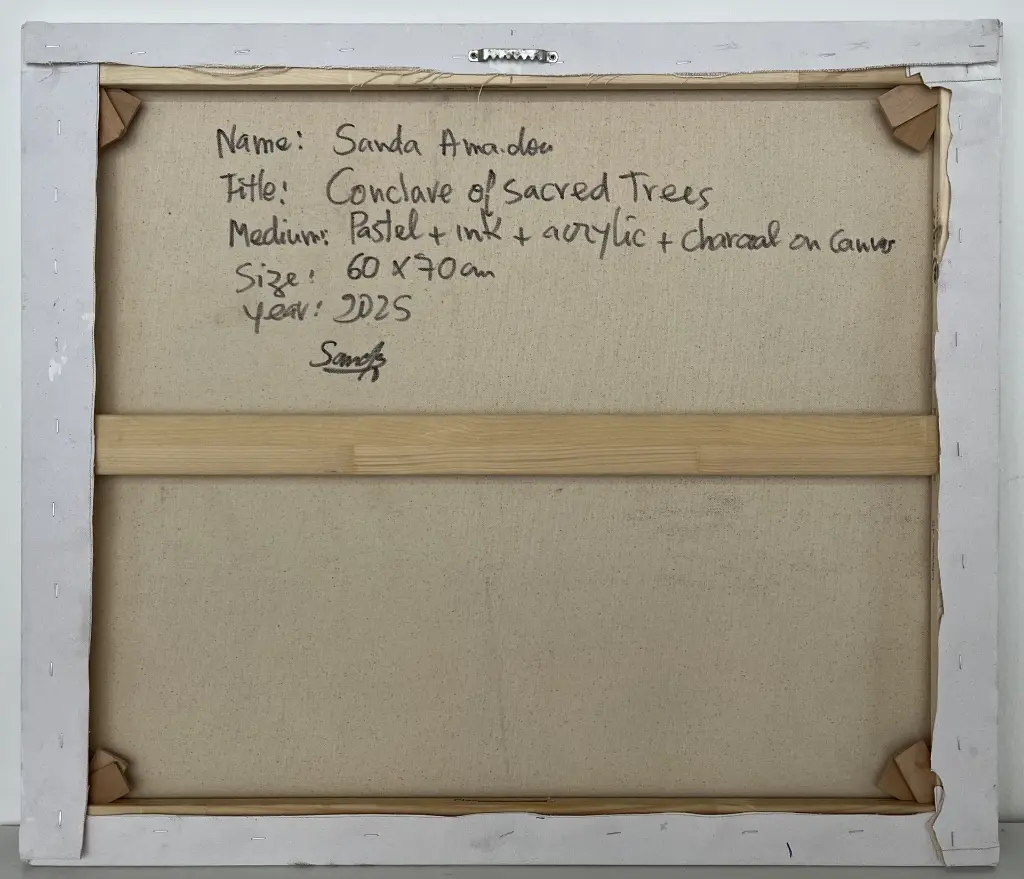 Name: Sanda Amadou
Title: Conclave of Sacred Trees
Medium: Pastel + ink + acrylic + charcoal on Canvas
Size: 60 x 70 cm
year: 2025
Sanda